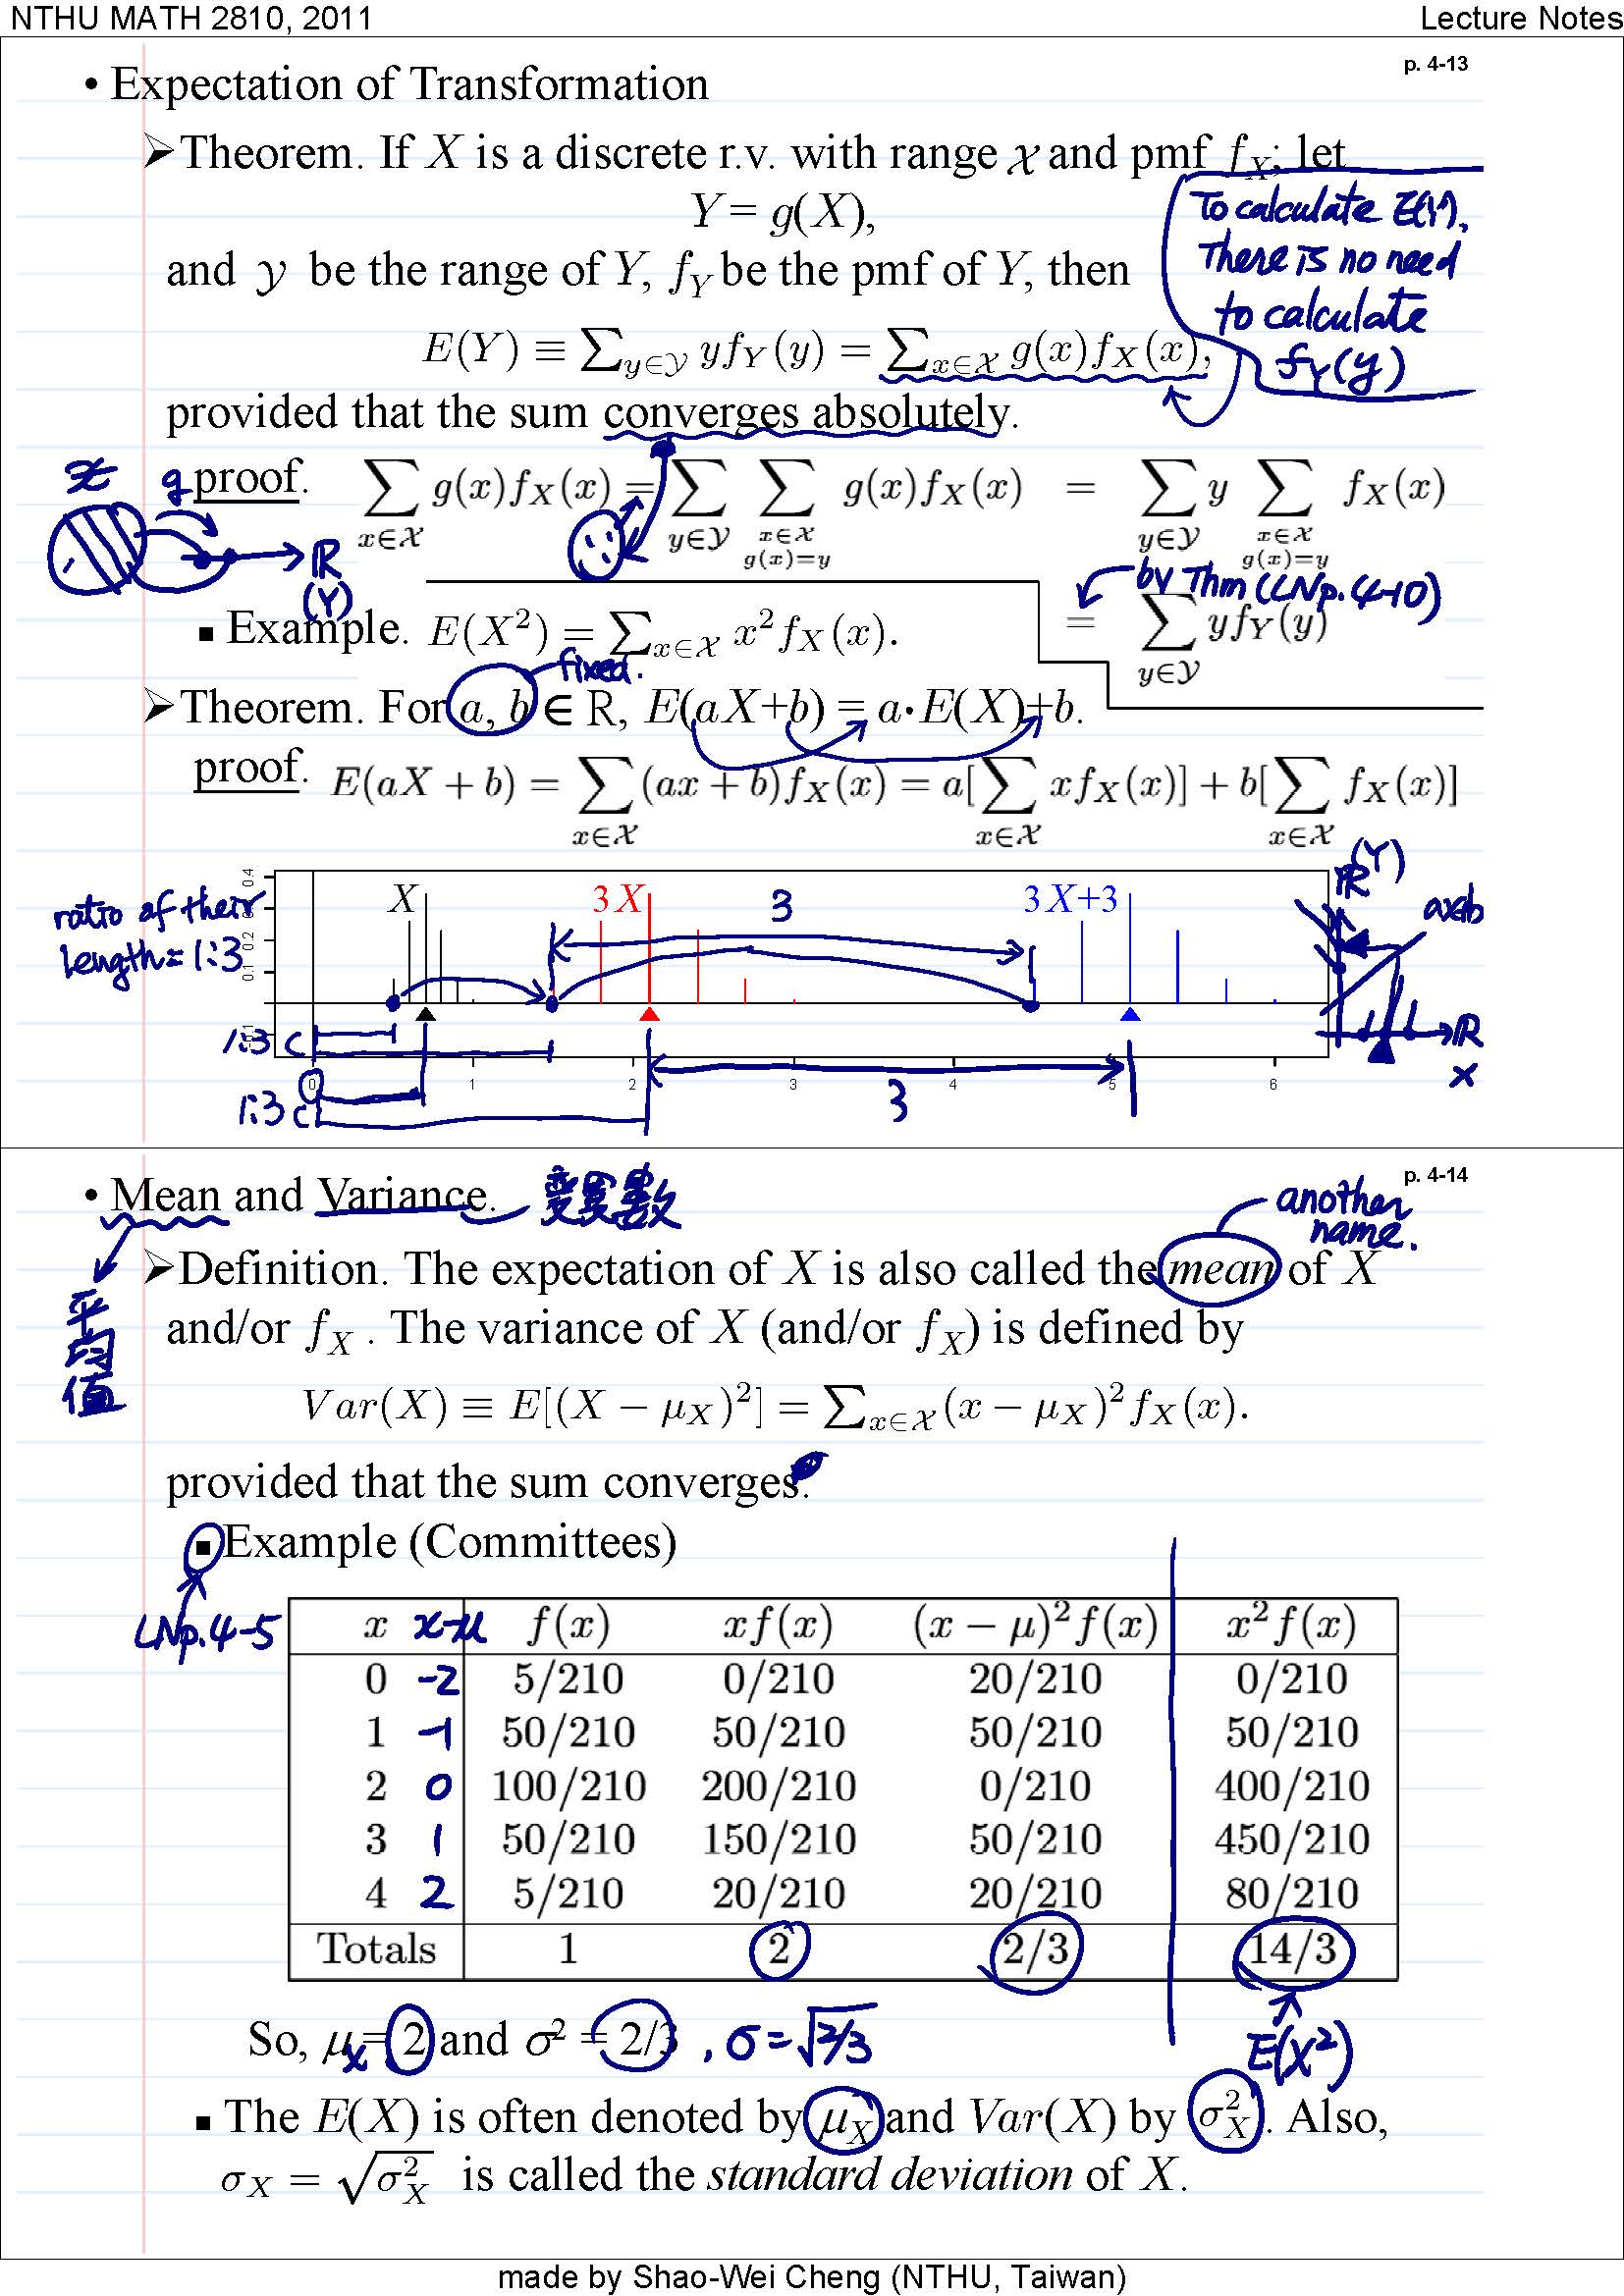 NTHU MATH 2810, 2011 Lecture Notes
p. 4-13
• Expectation of Transformation
➢Theorem. If X is a discrete r.v. with range 𝒳 and pmf f_X; let
Y = g(X),
To calculate E(Y),
There is no need
to calculate
f_Y(y)
and 𝒴 be the range of Y, f_Y be the pmf of Y, then
E(Y) ≡ ∑_{y∈𝒴} y f_Y(y) = ∑_{x∈𝒳} g(x) f_X(x),
provided that the sum converges absolutely.
𝒳 g
ℝ
(Y)
proof. ∑_{x∈𝒳} g(x) f_X(x) = ∑_{y∈𝒴} ∑_{x∈𝒳, g(x)=y} g(x) f_X(x) = ∑_{y∈𝒴} y ∑_{x∈𝒳, g(x)=y} f_X(x)
by Thm (LNp. 4-10)
= ∑_{y∈𝒴} y f_Y(y)
▪ Example. E(X²) = ∑_{x∈𝒳} x² f_X(x).
fixed.
➢Theorem. For a, b ∈ ℝ, E(aX+b) = a·E(X)+b.
proof. E(aX + b) = ∑_{x∈𝒳} (ax + b) f_X(x) = a[∑_{x∈𝒳} x f_X(x)] + b[∑_{x∈𝒳} f_X(x)]
ratio of their
length = 1:3
0.4
0.2
0.1
X 3X 3 3X+3
ℝ (Y)
ax+b
ℝ
x
1:3
0 1 2 3 4 5 6
1:3
3
p. 4-14
• Mean and Variance. 變異數
平均值
another
name.
➢Definition. The expectation of X is also called the mean of X
and/or f_X . The variance of X (and/or f_X) is defined by
Var(X) ≡ E[(X − μ_X)²] = ∑_{x∈𝒳} (x − μ_X)² f_X(x).
provided that the sum converges.
▪ Example (Committees)
LNp.4-5
x x-μ f(x) xf(x) (x − μ)²f(x) x²f(x)
0 -2 5/210 0/210 20/210 0/210
1 -1 50/210 50/210 50/210 50/210
2 0 100/210 200/210 0/210 400/210
3 1 50/210 150/210 50/210 450/210
4 2 5/210 20/210 20/210 80/210
Totals 1 2 2/3 14/3
So, μ_X = 2 and σ² = 2/3 , σ = √2/3
E(X²)
▪ The E(X) is often denoted by μ_X and Var(X) by σ²_X. Also,
σ_X = √σ²_X is called the standard deviation of X.
made by Shao-Wei Cheng (NTHU, Taiwan)